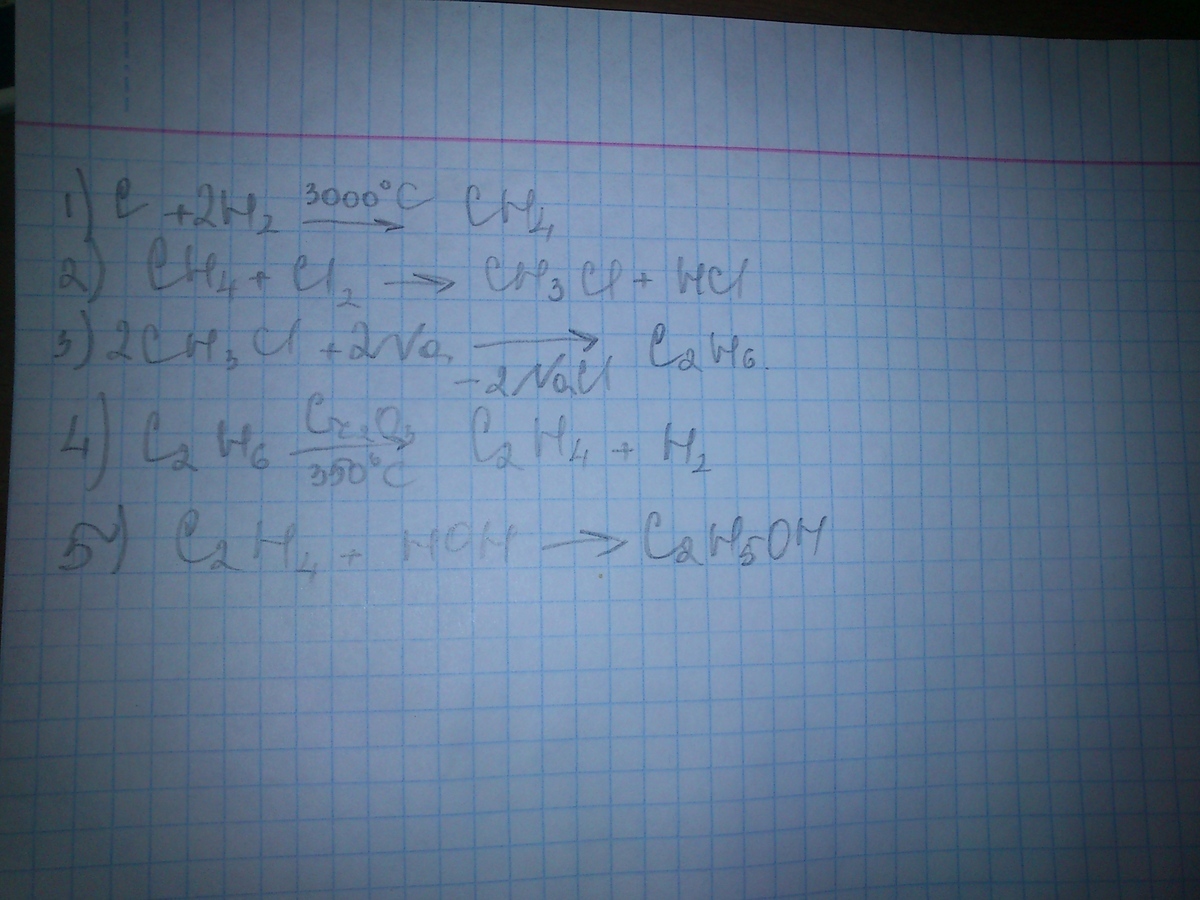 1) C + 2H₂ 3000°C → CH₄
2) CH₄ + Cl₂ → CH₃Cl + HCl
3) 2CH₃Cl + 2Na → -2NaCl C₂H₆.
4) C₂H₆ Cr₂O₃ → 350°C C₂H₄ + H₂
5) C₂H₄ + HOH → C₂H₅OH